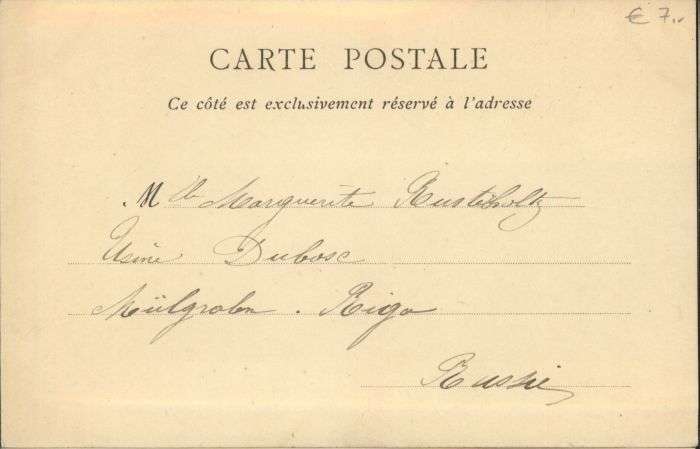 € 7,-
CARTE POSTALE
Ce côté est exclusivement réservé à l'adresse
Mlle Marguerite Rusterholtz
Usine Dubosc
Mülgraben . Riga
Russie